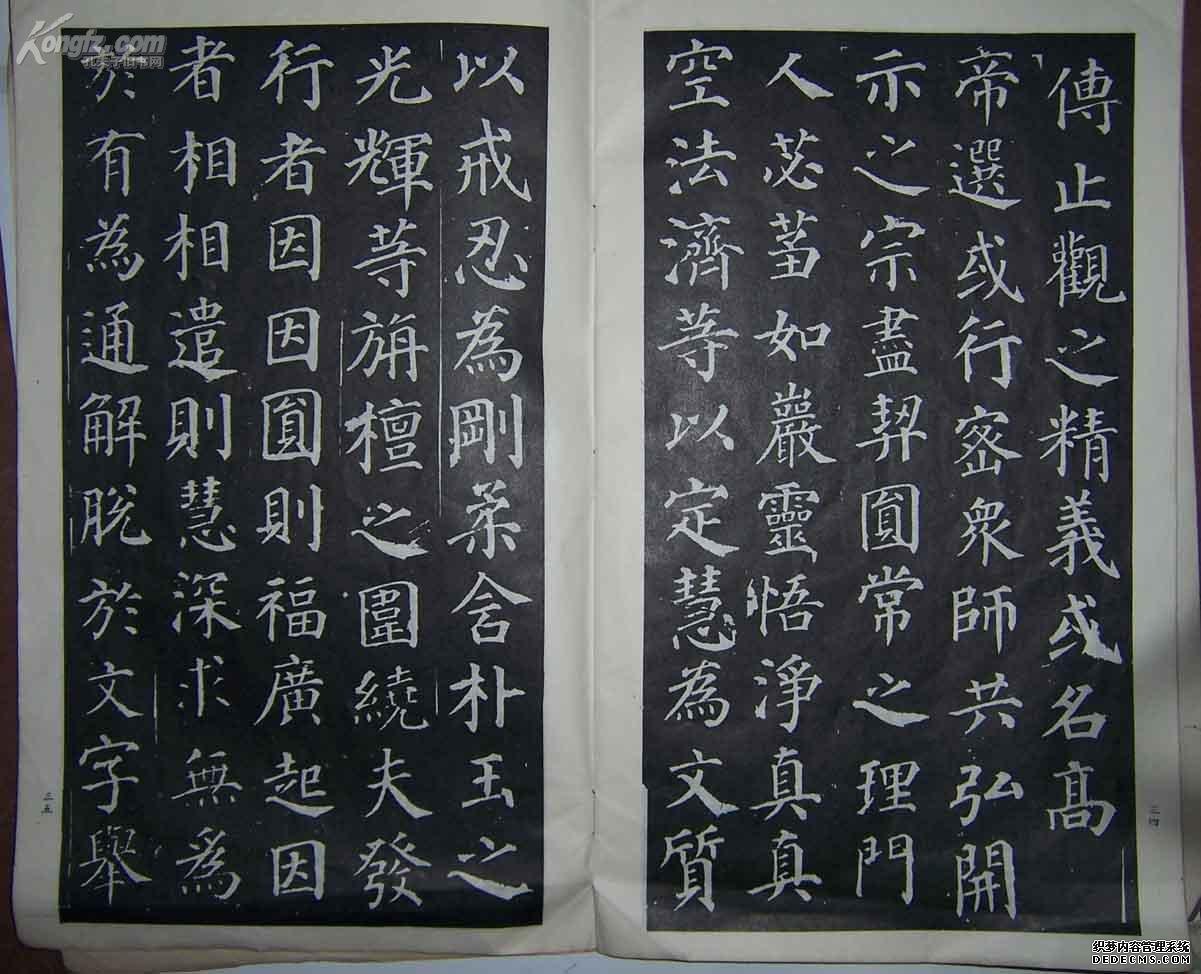 傳止觀之精義或名高
帝選或行密衆師共弘開
示之宗盡契圓常之理門
人苾蒭如巖靈悟淨真真
空法濟等以定慧為文質
三四
以戒忍為剛柔含朴玉之
光輝等旃檀之圍繞夫發
行者因因圓則福廣起因
者相相遣則慧深求無為
於有為通解脫於文字舉
三五
Kongfz.com
孔夫子旧书网
织梦内容管理系统
DEDECMS.COM